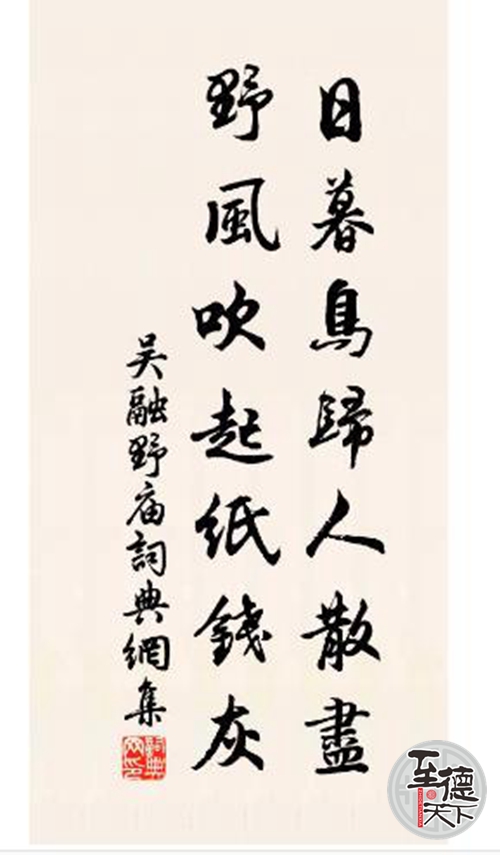 日暮鳥歸人散盡
野風吹起紙錢灰
吳融野庙詞典網集
詞典
至德
天下